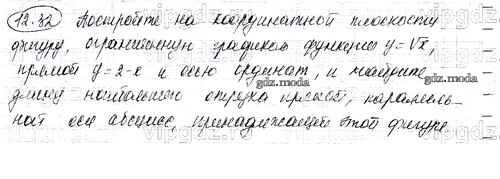 12.32 Постройте на координатной плоскости
фигуру, ограниченную графиком функции y = √x,
прямой y = 2 - x и осью ординат, и найдите
длину наибольшего отрезка прямой, параллель-
ной оси абсцисс, принадлежащей этой фигуре.
gdz.moda
gdz.moda